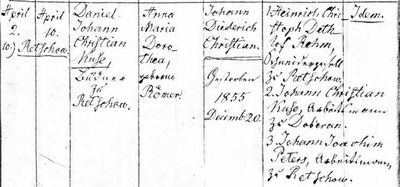 April
2.
10.)
April
10.
Retschow.
Daniel
Johann
Christian
Kuse,
Büdner
zu
Retschow.
Anna
Maria
Doro
thea,
geborne
Römer.
Johann
Diederich
Christian.
Geboren
1855
Decimb 20.
1 Heinrich Chri
stoph Deth
lof Rehm,
zu Retschow.
2. Johann Christian
Kuse, Arbeitsmann
zu Doberan.
3. Johann Joachim
Peters, Arbeitsmann
zu Retschow.
Idem.